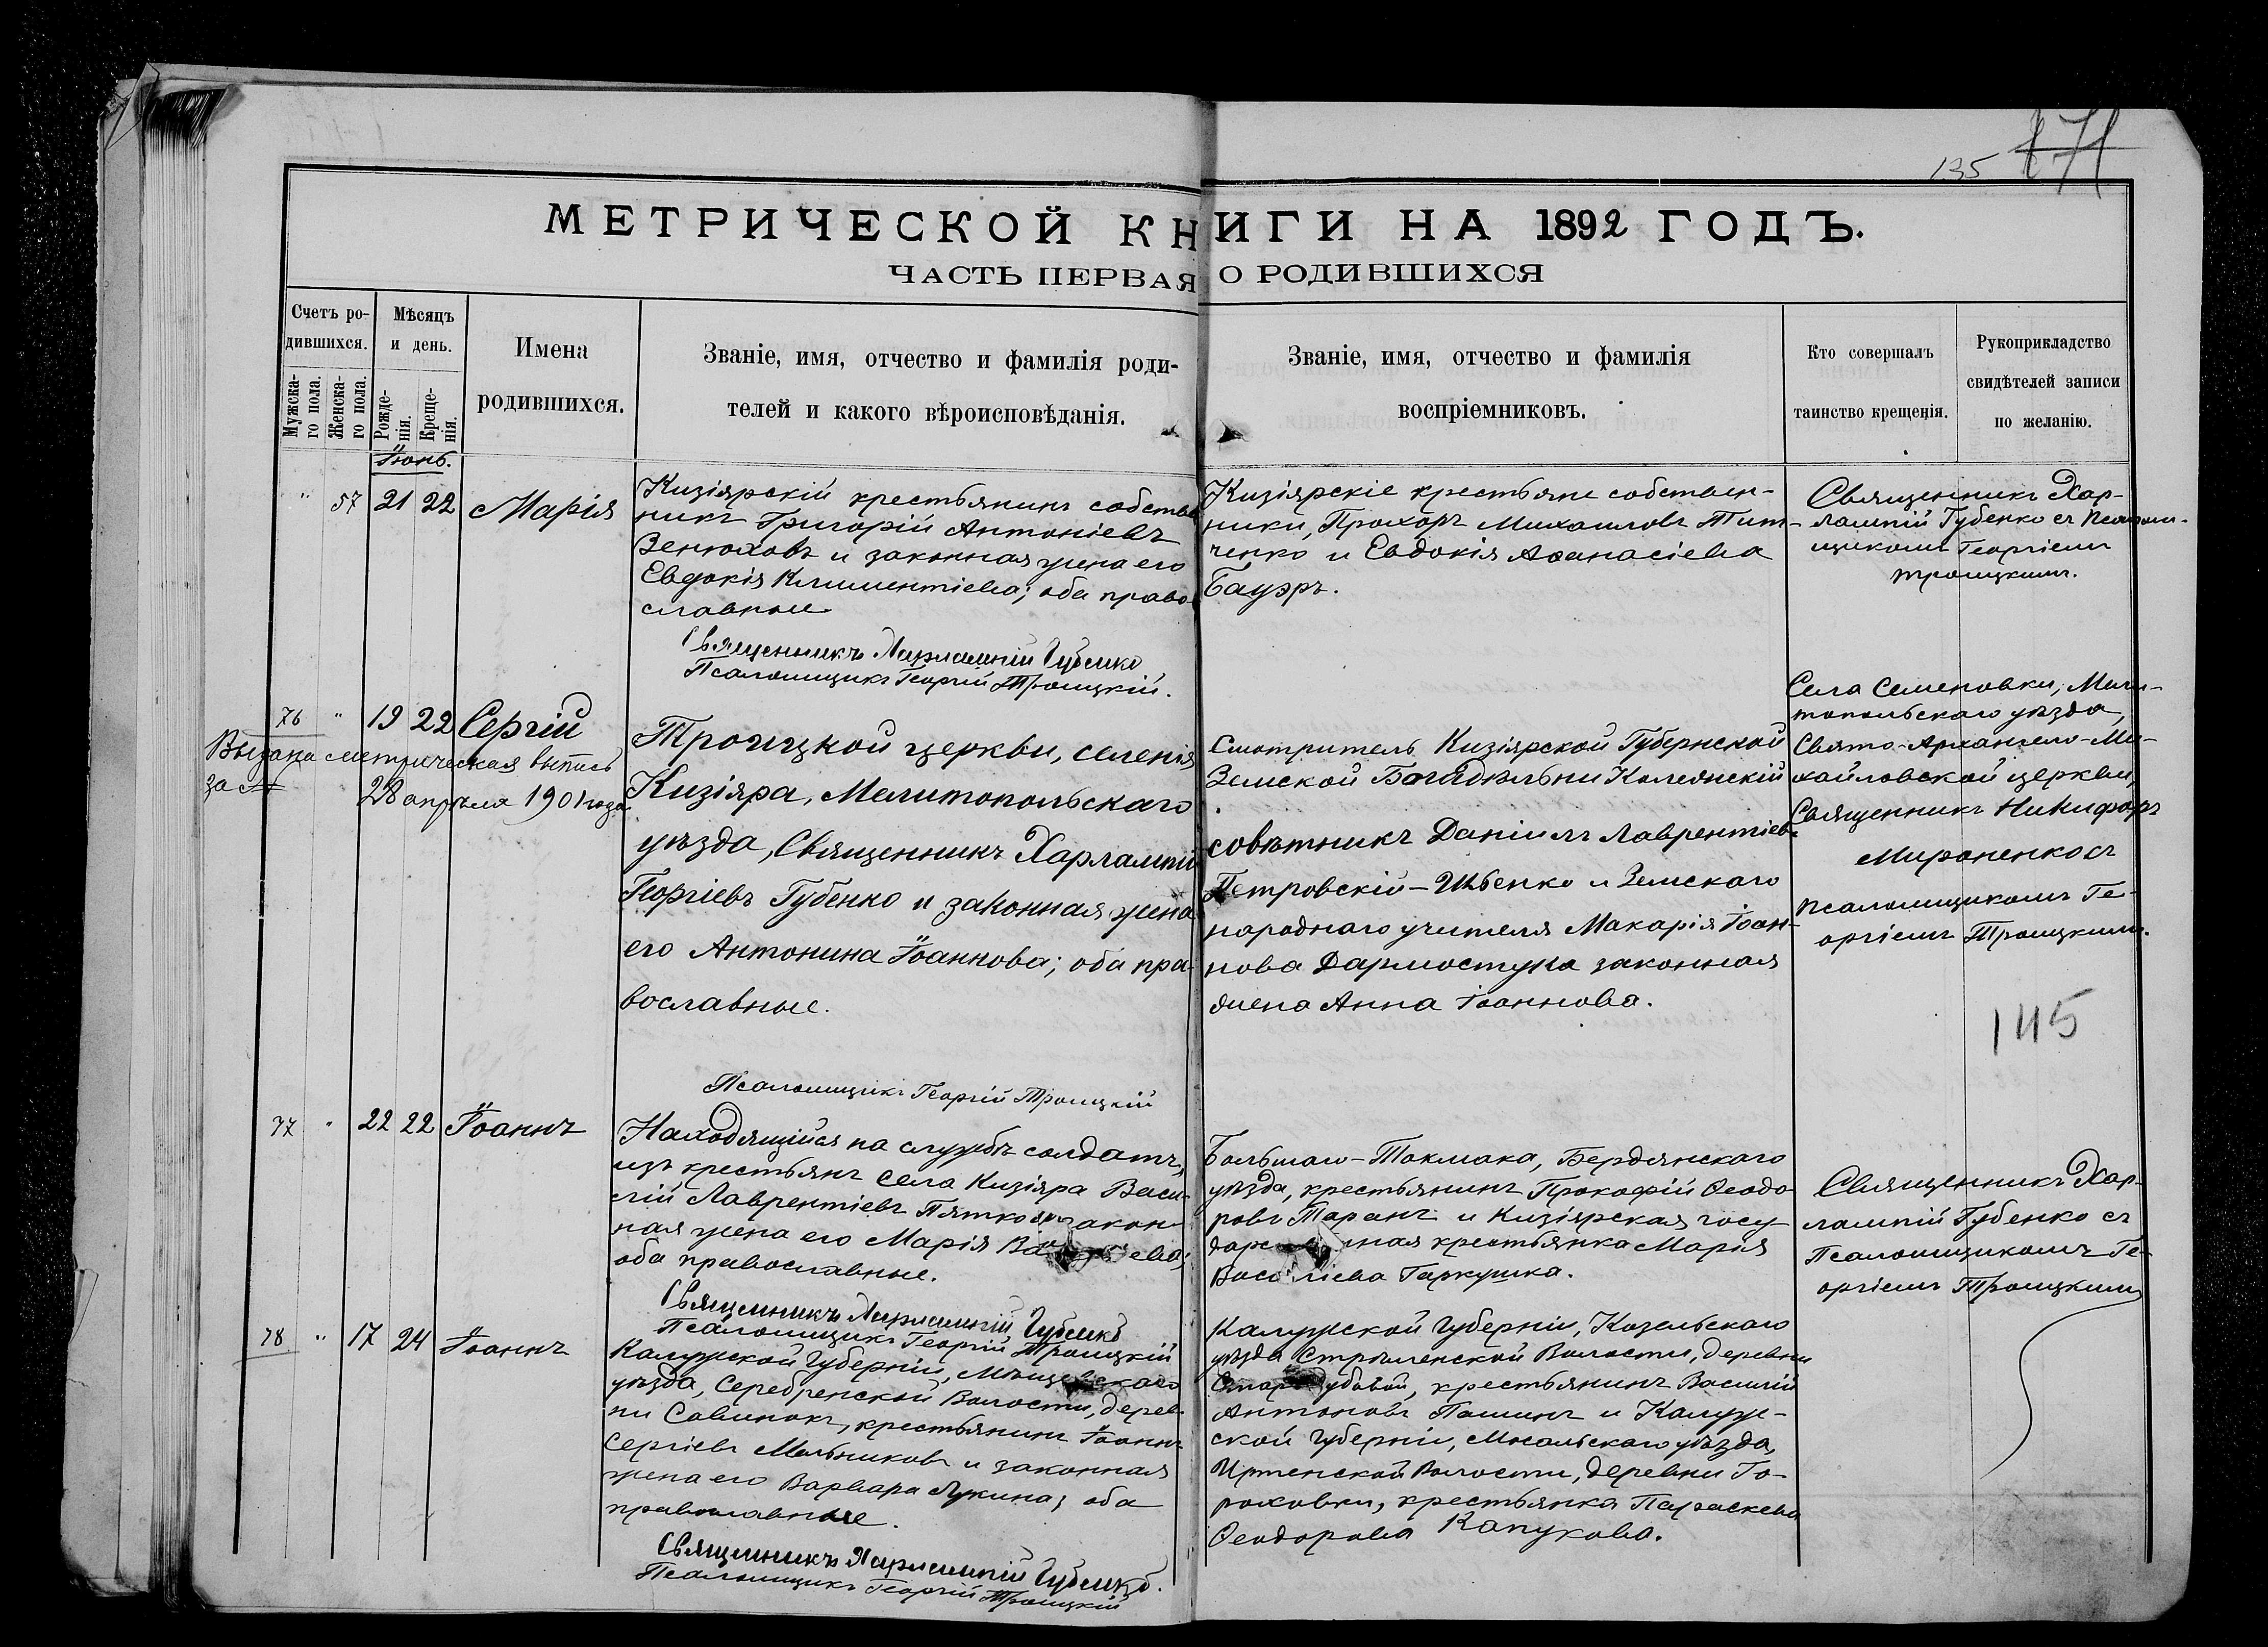 135 171
МЕТРИЧЕСКОЙ КНИГИ НА 1892 ГОДЪ.
ЧАСТЬ ПЕРВАЯ О РОДИВШИХСЯ
Счетъ ро-
дившихся.
Мужска-
го пола.
Женска-
го пола.
Мѣсяцъ
и день.
Рожде-
нія.
Креще-
нія.
Имена
родившихся.
Званіе, имя, отчество и фамилія роди-
телей и какого вѣроисповѣданія.
Званіе, имя, отчество и фамилія
воспріемниковъ.
Кто совершалъ
таинство крещенія.
Рукоприкладство
свидѣтелей записи
по желанію.
Іюнь.
" 57 21 22 Марія
Кизіярскій крестьянинъ собствен
никъ Григорій Антоніевъ
Зенюховъ и законная жена его
Евдокія Климентіева; оба право
славные
Священникъ Харлампій Губенко
Псаломщикъ Георгій Троицкій.
Кизіярскіе крестьяне собствен-
ники, Прохоръ Михаиловъ Тит-
ченко и Евдокія Аѳанасіева
Бауэръ.
Священникъ Хар-
лампій Губенко съ Псалом-
щикомъ Георгіемъ
Троицкимъ.
76 " 19 22 Сергій
Выдана метрическая выпись
за №
28 апрѣля 1901 года
Троицкой церкви, селенія
Кизіяра, Мелитопольскаго
уѣзда, Священникъ Харлампій
Георгіевъ Губенко и законная жена
его Антонина Іоаннова; оба пра-
вославные.
Псаломщикъ Георгій Троицкій
Смотритель Кизіярской Губернской
Земской Богадѣльни Колежскій
совѣтникъ Даніилъ Лаврентіевъ
Петровскій-Ильенко и Земскаго
народнаго учителя Макарія Іоан-
нова Дармостука законная
жена Анна Іоаннова.
Села Семеновки, Мели-
топольскаго уѣзда,
Свято-Архангело-Ми-
хайловской церкви,
Священникъ Никифоръ
Мироненко съ
псаломщикомъ Ге-
оргіемъ Троицкимъ.
145
77 " 22 22 Іоаннъ
Находящійся на службѣ солдатъ,
изъ крестьянъ села Кизіяра Васи-
лій Лаврентіевъ закон-
ная жена его Марія
оба православные.
Священникъ Харлампій Губенко
Псаломщикъ Георгій Троицкій
Большаго-Токмака, Бердянскаго
уѣзда, крестьянинъ Прокофій Ѳеодо
ровъ Таранъ и Кизіярская госу
дарс ная крестьянка Марія
Васильева Гаркушка.
Священникъ Хар-
лампій Губенко съ
Псаломщикомъ Ге-
оргіемъ Троицкимъ
78 " 17 24 Іоаннъ
Калужской Губерніи, Мещовскаго
уѣзда, Серебренской Волости, дерев-
ни Савинокъ, крестьянинъ Іоаннъ
Сергіевъ Мельниковъ и законная
жена его Варвара Лукина; оба
православные.
Священникъ Харлампій Губенко.
Псаломщикъ Георгій Троицкій
Калужской Губерніи, Козельскаго
уѣзда Стрѣленской Волости, деревни
крестьянинъ Василій
Антоновъ Пашинъ и Калуж-
ской Губерніи, уѣзда,
Волости, деревни Го-
роховки, крестьянка Параскева
Ѳеодорова Капукова.